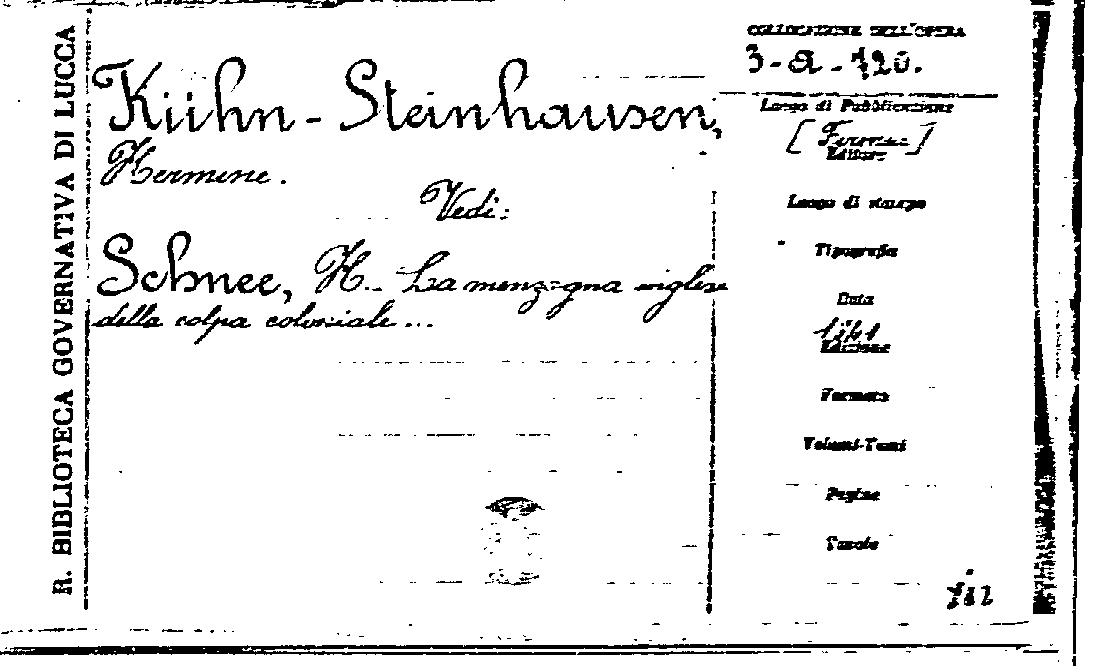 R. BIBLIOTECA GOVERNATIVA DI LUCCA
Kühn-Steinhausen,
Hermine.
Vedi:
Schnee, H. - La menzogna inglese
della colpa coloniale ...
COLLOCAZIONE DELL'OPERA
3-a-120.
Luogo di Pubblicazione
[Firenze]
Editore
Luogo di stampa
Tipografia
Data
1941
Edizione
Formato
Volumi-Tomi
Pagine
Tavole